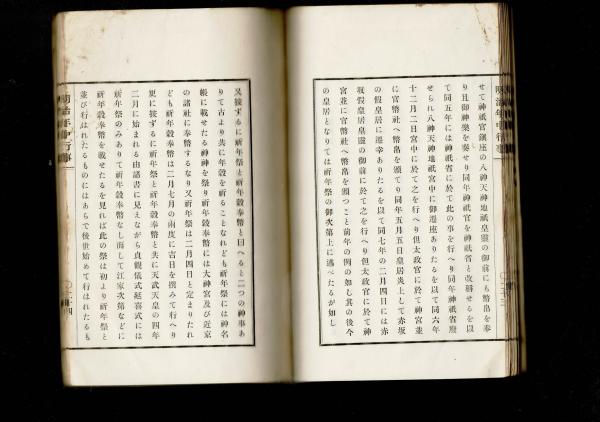 明治年中行事
せて神祇官鎭座の八神天神地祇皇靈の御前にも幣帛を奉
り且御神樂を奏せり同年神祇官を神祇省と改稱せるを以
て同五年には神祇省に於て此の事を行へり同年神祇省廢
せられ八神天神地祇宮中に御遷座ありたるを以て同六年
十二月二日宮中に於て之を行へり但太政官に於て神宮並
に官幣社へ幣帛を頒てり同年五月五日皇居炎上して赤坂
の假皇居に遷幸ありたるを以て同七年の二月四日には赤
坂假皇居皇靈の御前に於て之を行へり但太政官に於て神
宮並に官幣社へ幣帛を頒つこと前年の例の如し其の後今
の皇居となりては祈年祭の御次第上に述べたるが如し
又按ずるに祈年祭と祈年穀奉幣と曰へると二つの神事あ
りて古より共に年穀を祈ることなれども祈年祭には神名
帳に載せたる神神を祭り祈年穀奉幣には大神宮及び近京
の諸社に奉幣するなり又祈年祭は二月四日と定まりたれ
ども祈年穀奉幣は二月七月の兩度に吉日を撰みて行へり
更に按ずるに祈年祭と祈年穀奉幣と共に天武天皇の四年
二月に始まれる由諸書に見えながら貞觀儀式延喜式には
祈年祭のみありて祈年穀奉幣なし而して江家次第などに
祈年穀奉幣を載せたるを見れば此の祭は初より祈年祭と
並び行はれたるものにはあらで後世始めて行はれたるも
明治年中行事